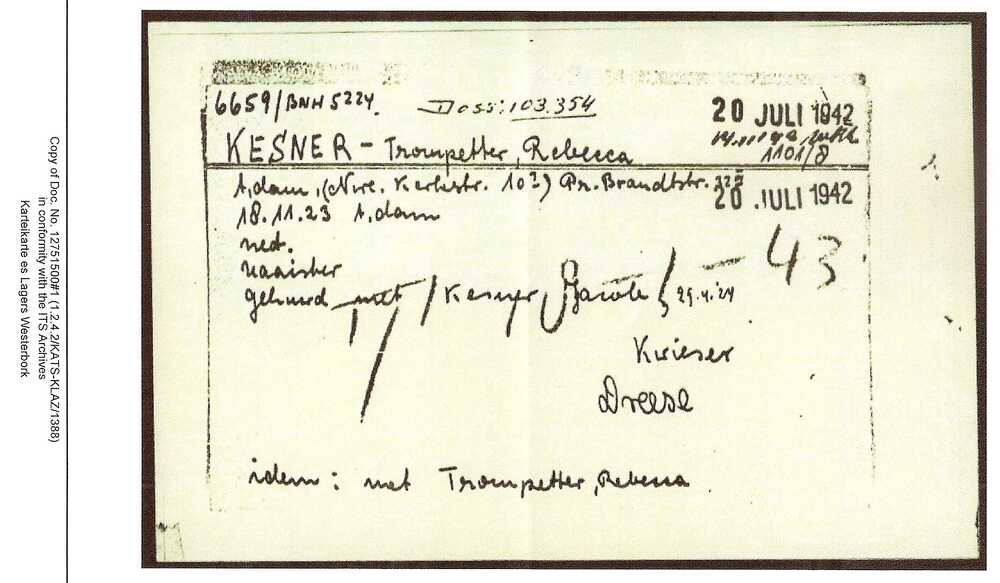 Copy of Doc. No. 12751500#1 (1.2.4.2/KATS-KLAZ/1388)
in conformity with the ITS Archives
Karteikarte es Lagers Westerbork
6659/BNH 5224. Doss: 103.354 20 JULI 1942
1101/8
KESNER - Trompetter, Rebecca
A,dam, (Nwe. Kerkstr. 103) Pr. Brandtstr.
20 JULI 1942
18.11.23 A,dam
ned.
naaister
gehuwd met Kesner, Jacob 29.4.24
17/ - 43
Kwieser
Dreese
idem: met Trompetter, Rebecca